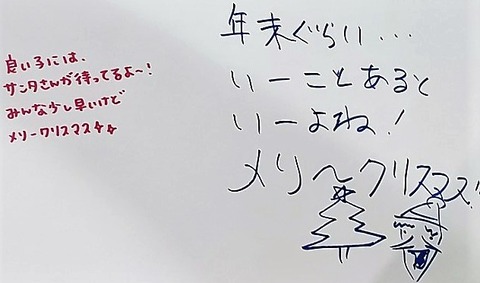 良い子には、
サンタさんが待ってるよ〜!
みんな少し早いけど
メリークリスマス☆☆
年末ぐらい…
いーことあると
いーよね!
メリ〜クリスマス!!